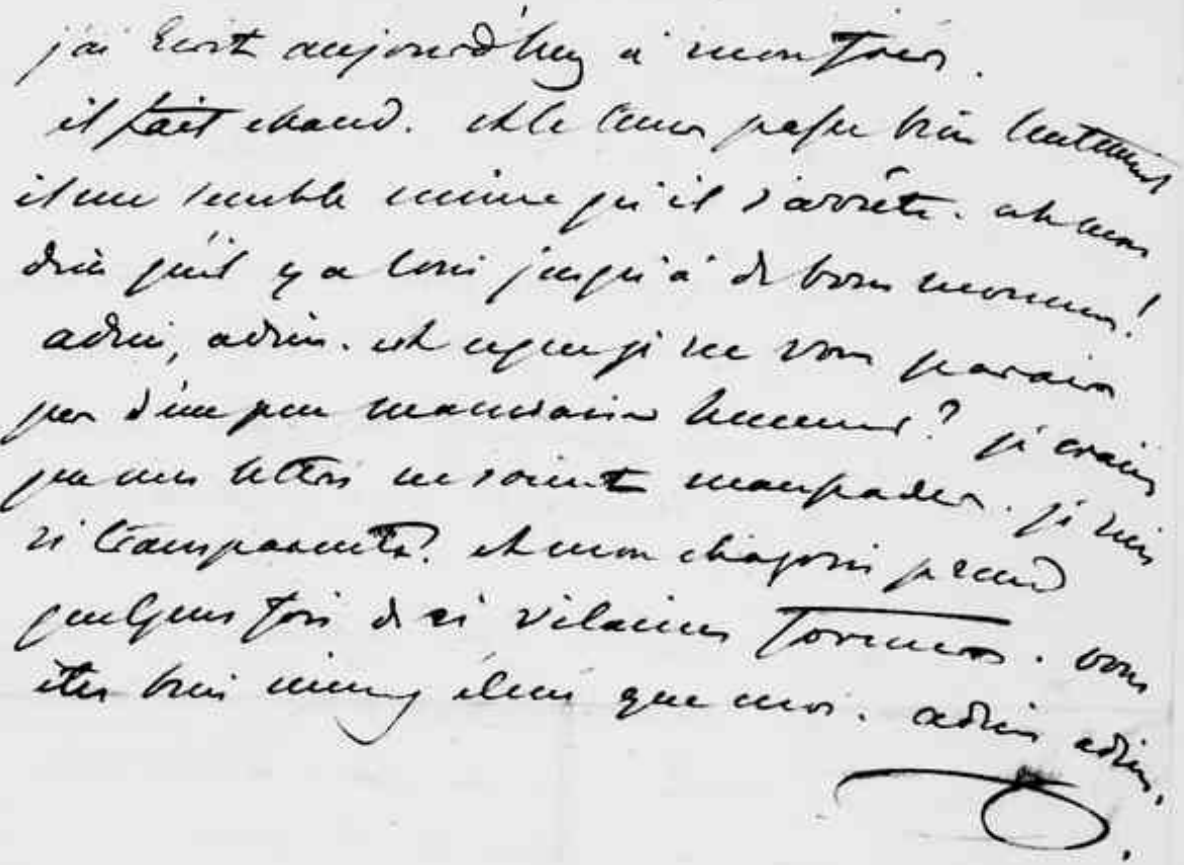 j'ai écrit aujourd'huy à mon frère.
il fait chaud. et le tems passe bien lentement
il me semble même qu'il s'arrête. ah mon
dieu qu'il y a loin jusqu'à de bons momens!
adieu, adieu. est ce que je ne vous parais
pas d'une peu mauvaise humeur? je crains
que mes lettres ne soient maussades. je suis
si transparente. et mon chagrin prend
quelques fois de si vilaines formes. vous
êtes bien mieux que moi. adieu adieu.